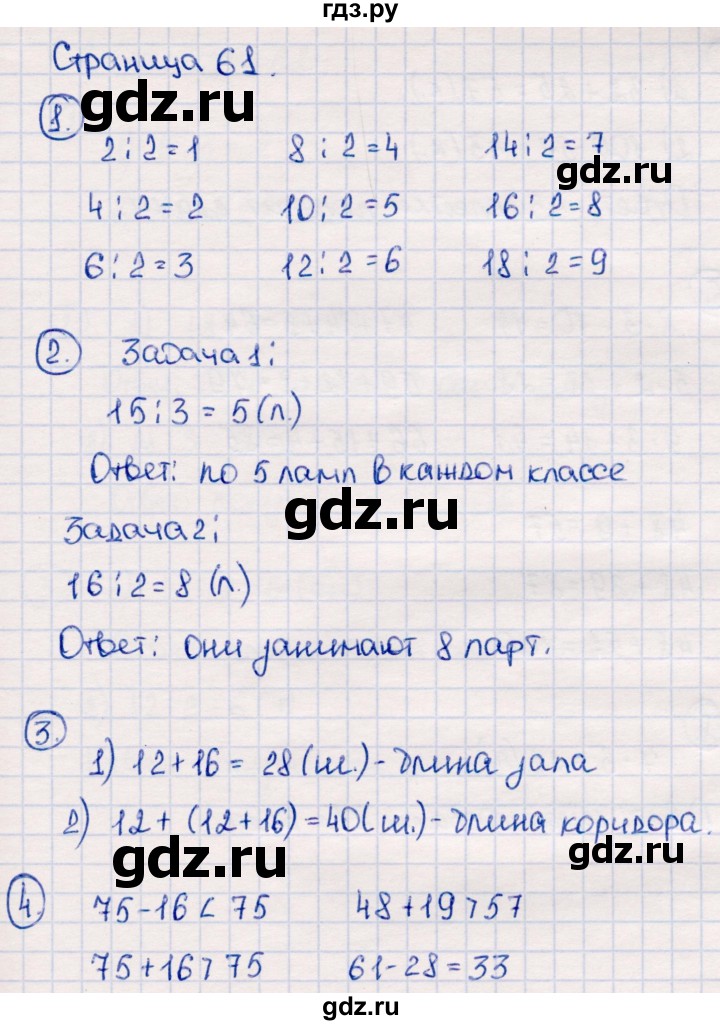 гдз.ру
Страница 61.
gdz.ru
1.
2:2=1 8:2=4 14:2=7
gdz.ru
4:2=2 10:2=5 16:2=8
6:2=3 12:2=6 18:2=9
2. Задача 1:
15:3=5(л.)
Ответ: по 5 ламп в каждом классе
gdz.ru
Задача 2:
16:2=8 (п.)
Ответ: они занимают 8 парт.
3.
1) 12+16=28(м.)-длина зала
2) 12+(12+16)=40(м.)-длина коридора.
gdz.ru gdz.ru
4. 75-16<75 48+19>57
75+16>75 61-28=33
gdz.ru